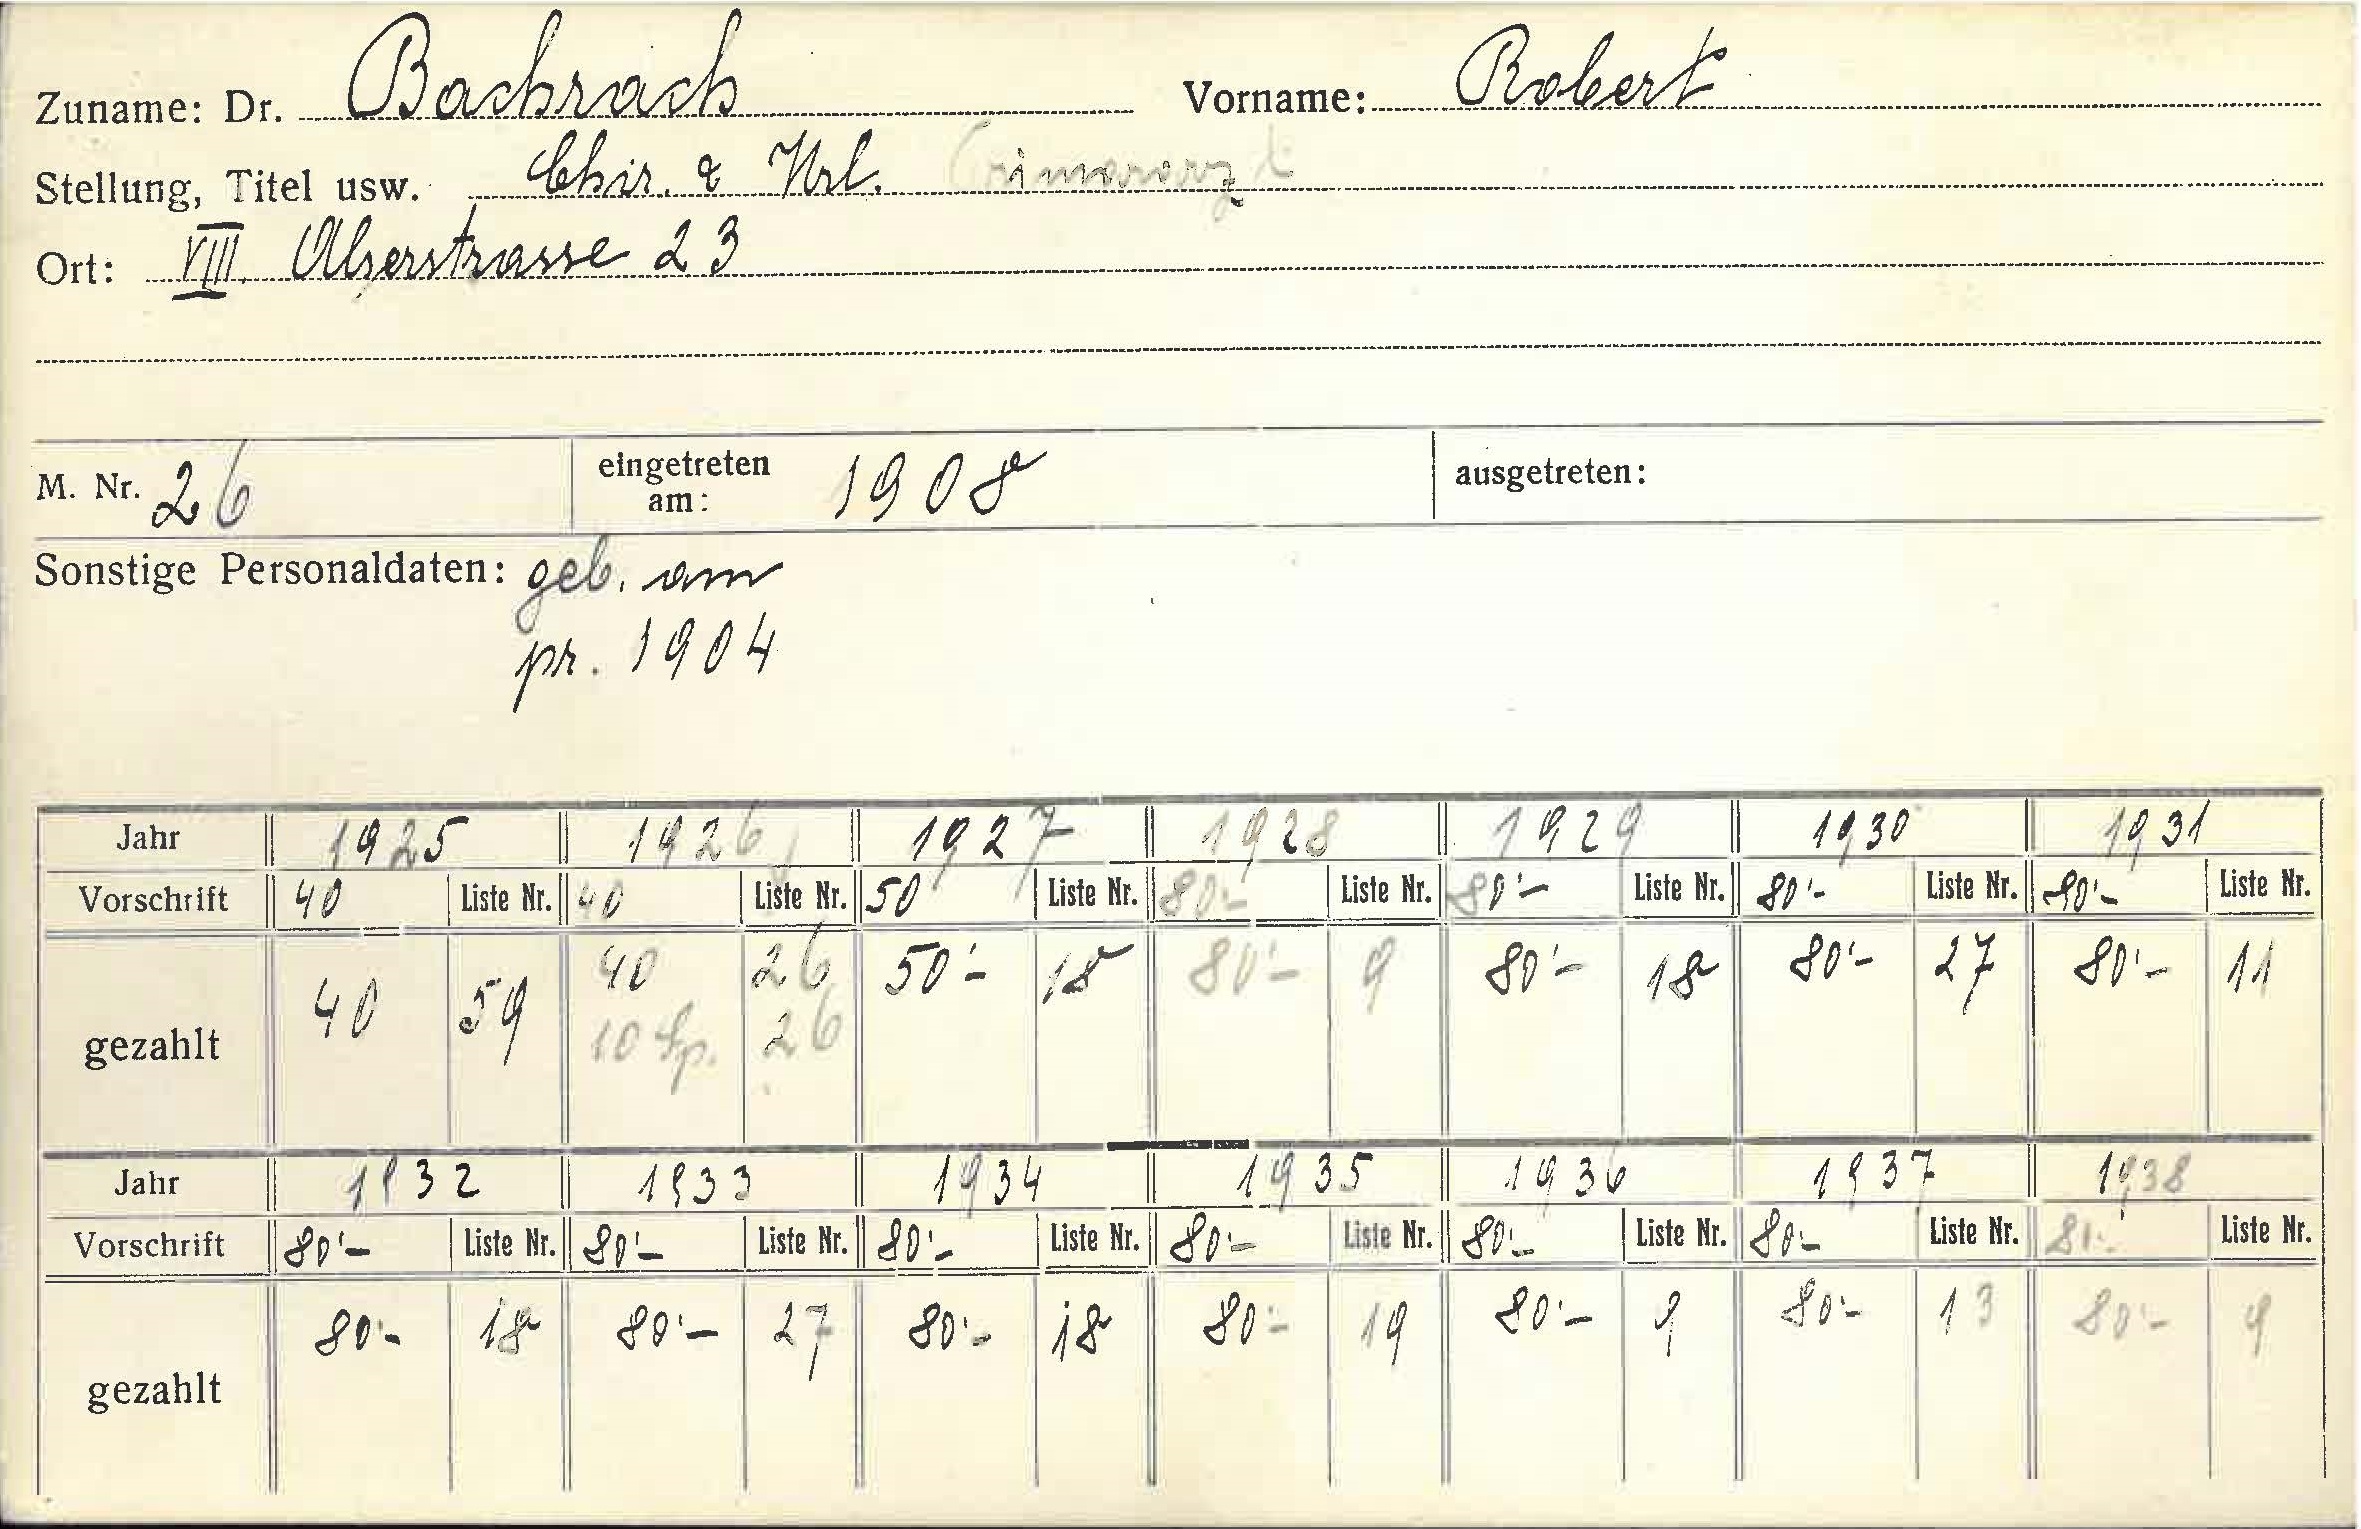 Zuname: Dr. Bachrach Vorname: Robert
Stellung, Titel usw. Chir. & Url. Primararzt
Ort: VIII. Alserstrasse 23
M. Nr. 26 eingetreten am: 1908 ausgetreten:
Sonstige Personaldaten: geb. am
pr. 1904
Jahr 1925 1926 1927 1928 1929 1930 1931
Vorschrift 40 Liste Nr. 40 Liste Nr. 50 Liste Nr. 80'- Liste Nr. 80'- Liste Nr. 80'- Liste Nr. 80'- Liste Nr.
gezahlt 40 59 40 26 50'- 18 80'- 9 80'- 18 80'- 27 80'- 11
10 Sp. 26
Jahr 1932 1933 1934 1935 1936 1937 1938
Vorschrift 80'- Liste Nr. 80'- Liste Nr. 80'- Liste Nr. 80'- Liste Nr. 80'- Liste Nr. 80'- Liste Nr. 80'- Liste Nr.
gezahlt 80'- 18 80'- 27 80'- 18 80'- 19 80'- 9 80'- 13 80'- 9